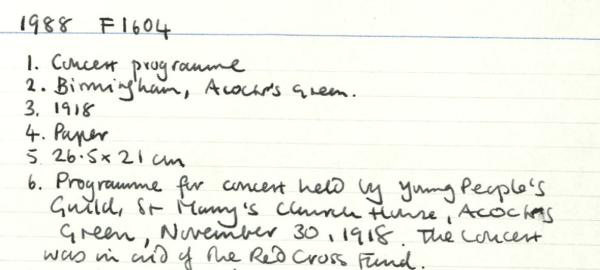 1988 F1604
1. Concert programme
2. Birmingham, Acock's Green.
3. 1918
4. Paper
5. 26.5 x 21 cm
6. Programme for concert held by Young People's
Guild, St Mary's Church House, Acocks
Green, November 30, 1918. The concert
was in aid of the Red Cross Fund.